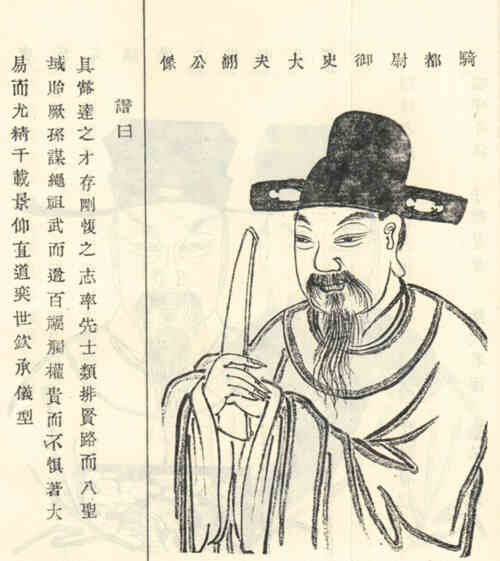 騎都尉御史大夫公像
讚曰
具達之才存剛愎之志率先士類排賢路而入聖
域貽厥孫謀繩祖武而邀百福觸權貴而不懼著大
易而尤精千載景仰直道奕世欽承儀型